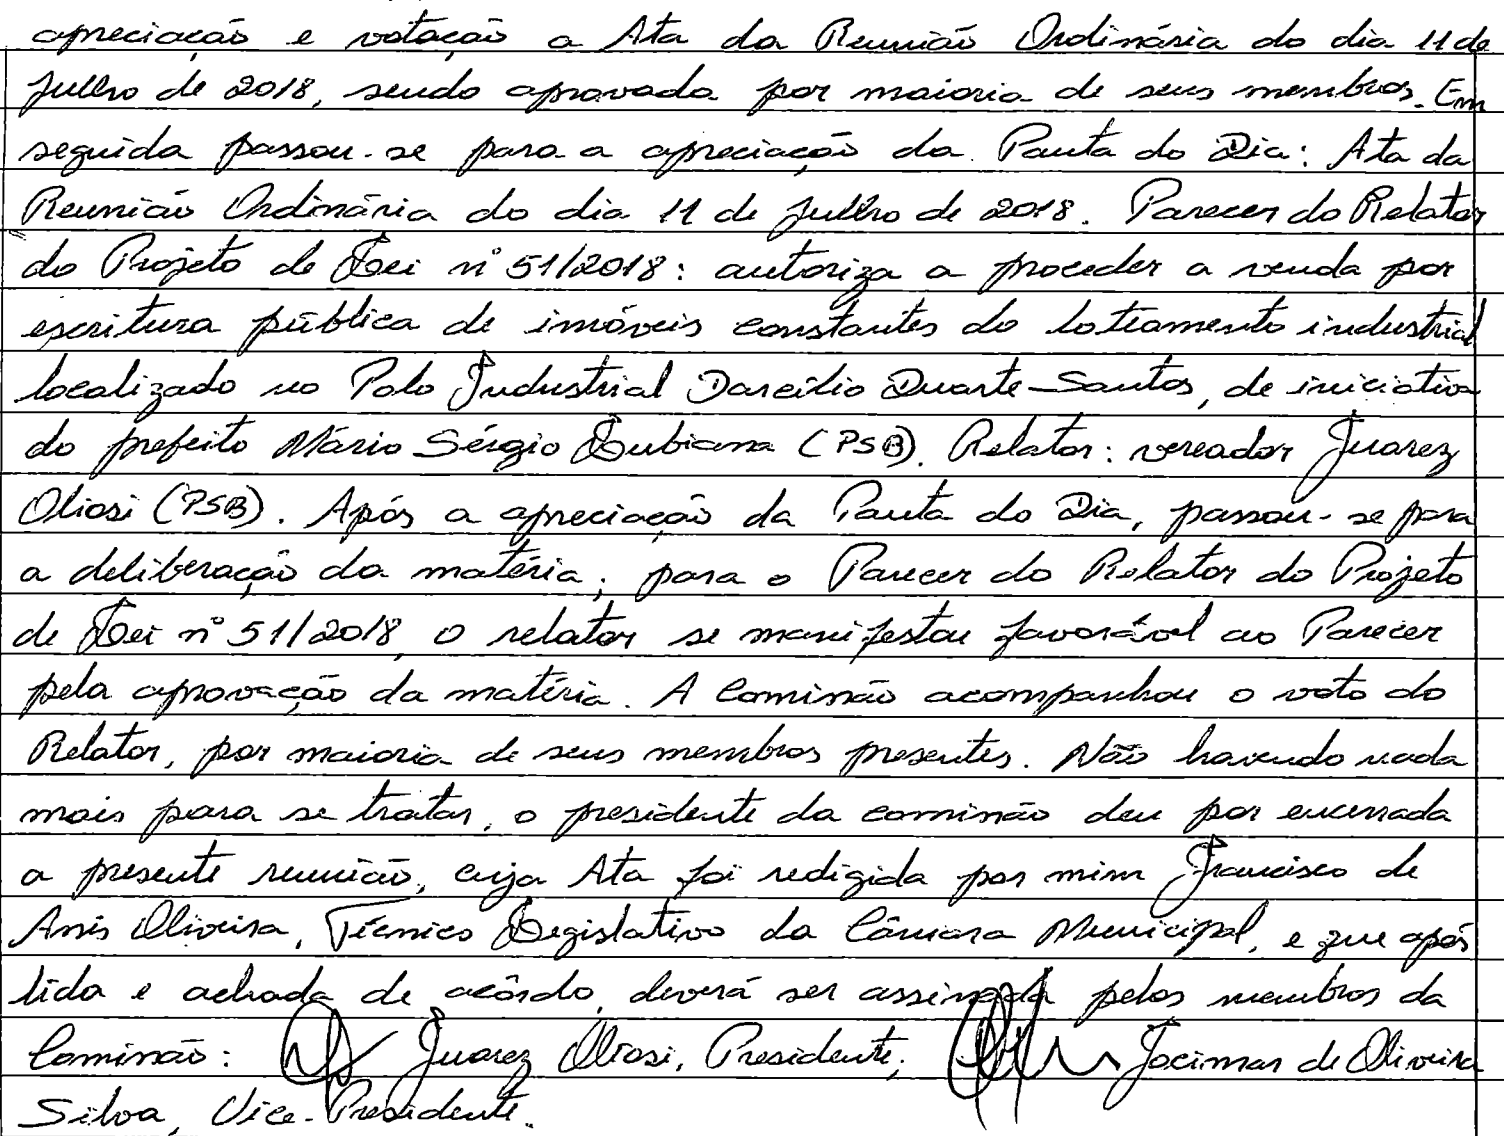 apreciação e votação a Ata da Reunião Ordinária do dia 11 de
julho de 2018, sendo aprovada por maioria de seus membros. Em
seguida passou-se para a apreciação da Pauta do Dia: Ata da
Reunião Ordinária do dia 11 de julho de 2018. Parecer do Relator
do Projeto de Lei nº 51/2018: autoriza a proceder a venda por
escritura pública de imóveis constantes do loteamento industrial
localizado no Polo Industrial Darcílio Duarte Santos, de iniciativa
do prefeito Mário Sérgio Lubiana (PSB). Relator: vereador Juarez
Oliosi (PSB). Após a apreciação da Pauta do Dia, passou-se para
a deliberação da matéria; para o Parecer do Relator do Projeto
de Lei nº 51/2018, o relator se manifestou favorável ao Parecer
pela aprovação da matéria. A Comissão acompanhou o voto do
Relator, por maioria de seus membros presentes. Não havendo nada
mais para se tratar, o presidente da comissão deu por encerrada
a presente reunião, cuja Ata foi redigida por mim Francisco de
Assis Oliveira, Técnico Legislativo da Câmara Municipal, e que após
lida e achada de acôrdo, deverá ser assinada pelos membros da
Comissão: Juarez Oliosi, Presidente; Jocimar de Oliveira
Silva, Vice-Presidente.